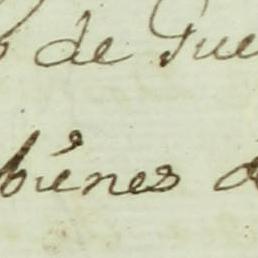 de Pue
biénes d